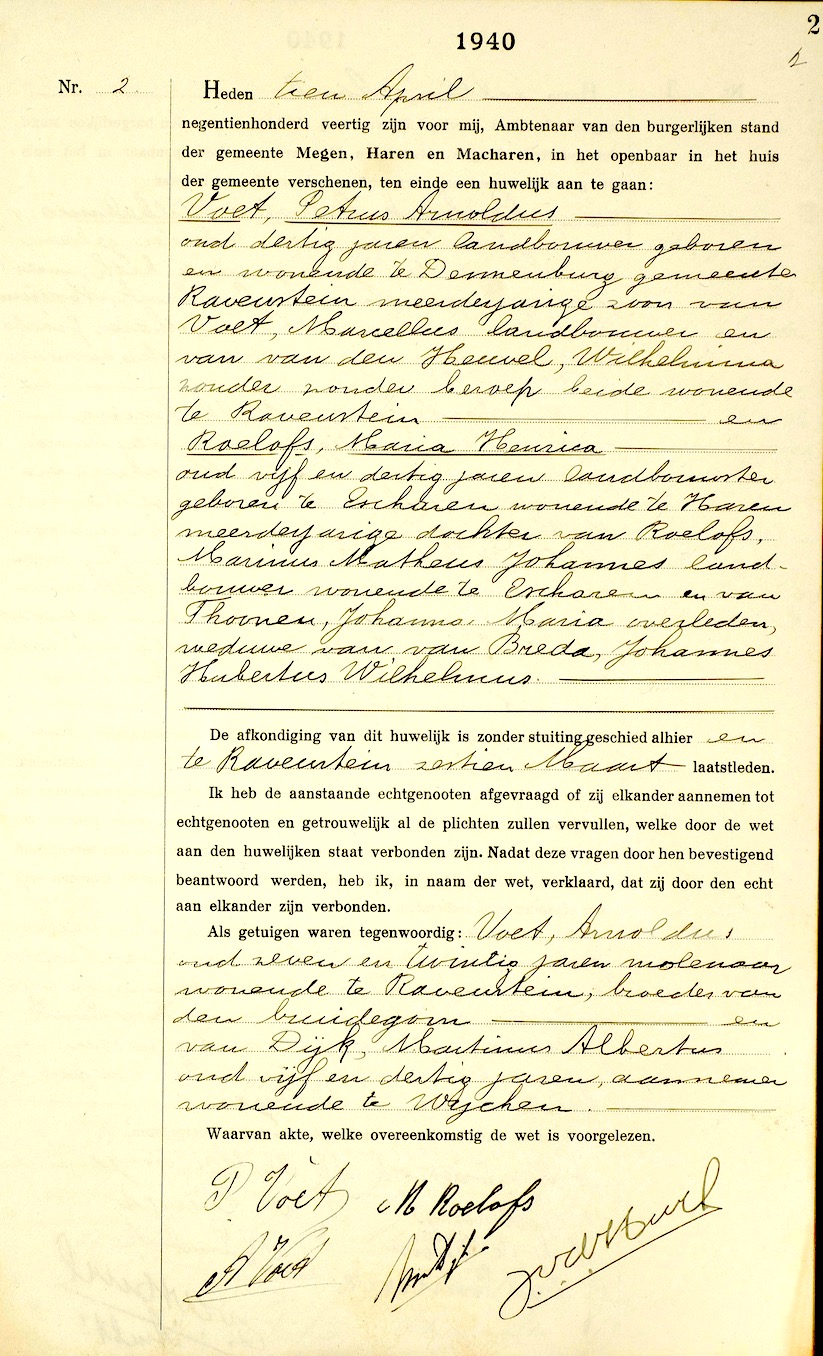 2
1940
2
Nr. 2.
Heden tien April
negentienhonderd veertig zijn voor mij, Ambtenaar van den burgerlijken stand
der gemeente Megen, Haren en Macharen, in het openbaar in het huis
der gemeente verschenen, ten einde een huwelijk aan te gaan:
Voet, Petrus Arnoldus
oud dertig jaren landbouwer geboren
en wonende te Dennenburg gemeente
Ravenstein meerderjarige zoon van
Voet, Marcellus landbouwer en
van van den Heuvel, Wilhelmina
zonder zonder beroep beide wonende
te Ravenstein en
Roelofs, Maria Henrica
oud vijf en dertig jaren landbouwster
geboren te Escharen wonende te Haren
meerderjarige dochter van Roelofs,
Marinus Matheus Johannes land-
bouwer wonende te Escharen en van
Thoonen, Johanna Maria overleden,
weduwe van van Breda, Johannes
Hubertus Wilhelmus.
De afkondiging van dit huwelijk is zonder stuiting geschied alhier en
te Ravenstein zestien Maart laatstleden.
Ik heb de aanstaande echtgenooten afgevraagd of zij elkander aannemen tot
echtgenooten en getrouwelijk al de plichten zullen vervullen, welke door de wet
aan den huwelijken staat verbonden zijn. Nadat deze vragen door hen bevestigend
beantwoord werden, heb ik, in naam der wet, verklaard, dat zij door den echt
aan elkander zijn verbonden.
Als getuigen waren tegenwoordig: Voet, Arnoldus
oud zeven en twintig jaren molenaar
wonende te Ravenstein, broeder van
den bruidegom en
van Dijk, Martinus Albertus
oud vijf en dertig jaren, aannemer
wonende te Wychen.
Waarvan akte, welke overeenkomstig de wet is voorgelezen.
P Voet M Roelofs
A Voet